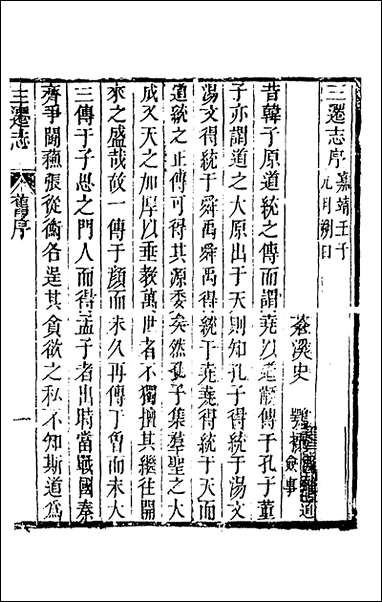 三遷志序 嘉靖壬子
元月朔日
蒼溪史鶚 僉事
昔韓子原道統之傳而謂堯以道傳于孔子董
子亦謂道之大原出于天則知孔子得統于湯文
湯文得統于舜禹舜禹得統于堯堯得統于天而
道統之正傳可得其源委矣然孔子集羣聖之大
成又天之加厚以垂教萬世者不獨擅其繼往開
來之盛哉故一傳于顏而未久再傳于曾而未大
三傳于子思之門人而得孟子者出時當戰國秦
齊爭鬬蘓張從衡各逞其貪欲之私不知斯道為
三遷志 舊序 一